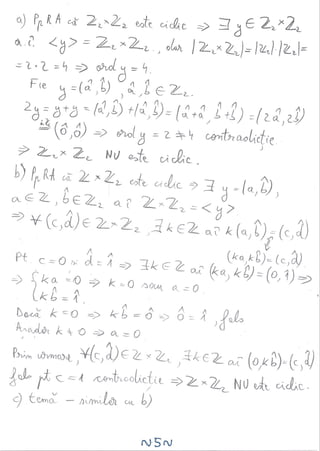 a) PpRA că ℤ₂×ℤ₂ este ciclic ⇒ ∃ y ∈ ℤ₂×ℤ₂
a.î. <y> = ℤ₂×ℤ₂, dar |ℤ₂×ℤ₂|=|ℤ₂|·|ℤ₂|=
= 2·2 = 4 ⇒ ord y = 4.
Fie y = (â, b̂), â, b̂ ∈ ℤ₂.
2y = y+y = (â, b̂) + (â, b̂) = (â+â, b̂+b̂) = (2â, 2b̂)
= (0̂, 0̂) ⇒ ord y = 2 ≠ 4 contradicție
⇒ ℤ₂×ℤ₂ NU este ciclic.
b) PpRA că ℤ×ℤ₂ este ciclic ⇒ ∃ y = (a, b̂),
a ∈ ℤ, b̂ ∈ ℤ₂ aî ℤ×ℤ₂ = <y>
⇒ ∀ (c, d̂) ∈ ℤ×ℤ₂ ∃ k ∈ ℤ aî k(a, b̂) = (c, d̂)
(ka, kb̂) = (c, d̂)
Pt. c = 0 și d̂ = 1̂ ⇒ ∃ k ∈ ℤ aî (ka, kb̂) = (0, 1̂) ⇒
⇒ { ka = 0 ⇒ k = 0 sau a = 0.
kb̂ = 1̂.
Dacă k = 0 ⇒ kb̂ = 0̂ ⇒ 0̂ = 1̂, fals
Așadar k ≠ 0 ⇒ a = 0
Prin urmare, ∀ (c, d̂) ∈ ℤ×ℤ₂, ∃ k ∈ ℤ aî (0, kb̂) = (c, d̂)
fals pt c = 1 contradicție ⇒ ℤ×ℤ₂ NU este ciclic.
c) temă – similar cu b)
~5~